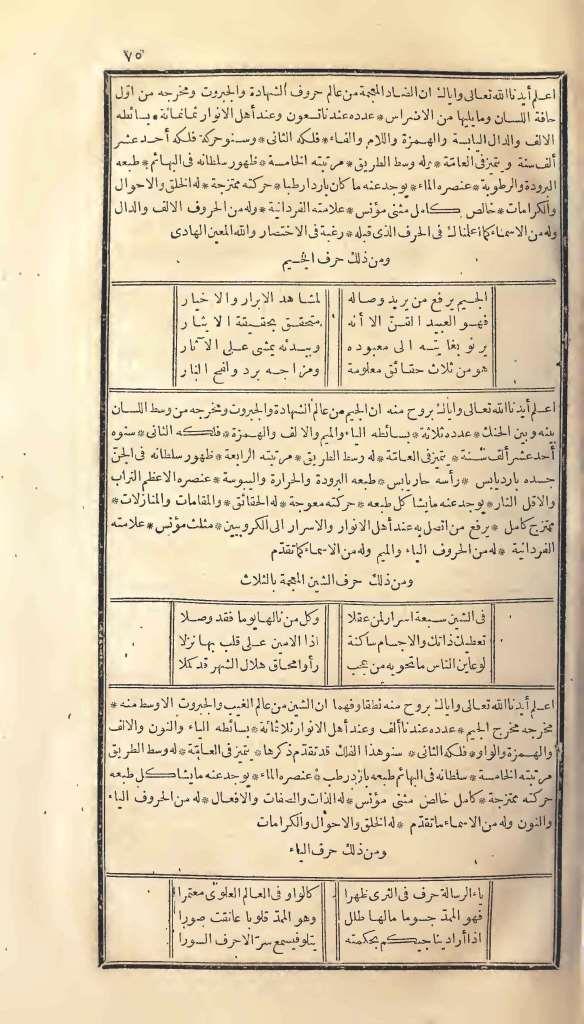 ٧٥
اعلم أيدنا الله تعالى واياك ان الضاد المعجمة من عالم حروف الشهادة والجبروت ومخرجه من أول
حافة اللسان وما يليها من الاضراس * عدده عندنا تسعون وعند أهل الانوار ثمانمائة * بسائطه
الالف والدال اليابسة والهمزة واللام والفاء * فلكه الثانى * وسنو حركة فلكه أحد عشر
ألف سنة ويتميز فى العامّة * وله وسط الطريق * مرتبته الخامسة * ظهور سلطانه فى البهائم * طبعه
البرودة والرطوبة * عنصره الماء * يوجد عنه ما كان باردا رطبا * حركته ممتزجة * له الخلق والاحوال
والكرامات * خالص كامل مثنى مؤنس * علامته الفردانية * وله من الحروف الالف والدال
وله من الاسماء كما أعلمناك فى الحرف الذى قبله * رغبة فى الاختصار والله المعين الهادى
ومن ذلك حرف الجيم
الجيم يرفع من يريد وصاله لمشاهد الابرار والاخيار
فهو العبيد القنّ الا أنه متحقق بحقيقة الايثار
يرنو بغايته الى معبوده وببدئه يمشى على الآثار
هو من ثلاث حقائق معلومة ومزاجه برد ولفح النار
اعلم أيدنا الله تعالى واياك بروح منه ان الجيم من عالم الشهادة والجبروت ومخرجه من وسط اللسان
بينه وبين الحنك * عدده ثلاثة * بسائطه الياء والميم والالف والهمزة * فلكه الثانى * سنوه
أحد عشر ألف سنة * يتميز فى العامّة * له وسط الطريق * مرتبته الرابعة * ظهور سلطانه فى الجنّ
جسده بارد يابس * رأسه حار يابس * طبعه البرودة والحرارة واليبوسة * عنصره الاعظم التراب
والاقل النار * يوجد عنه ما يشاكل طبعه * حركته معوجة * له الحقائق * والمقامات والمنازلات *
ممتزج كامل * يرفع من اتصل به عند أهل الانوار والاسرار الى الكروبيين * مثلث مؤنس * علامته
الفردانية * له من الحروف الياء والميم وله من الاسماء كما تقدّم
ومن ذلك حرف الشين المعجمة بالثلاث
فى الشين سبعة اسرار لمن عقلا وكل من نالها يوما فقد وصلا
تعطيك ذاتك والاجسام ساكنة اذا الامين على قلب بها نزلا
لو عاين الناس ما تحويه من عجب رأوا محاق هلال الشهر قد كملا
اعلم أيدنا الله تعالى واياك بروح منه نطقا وفهما ان الشين من عالم الغيب والجبروت الاوسط منه *
مخرجه مخرج الجيم * عدده عندنا ألف وعند أهل الانوار ثلاثمائة * بسائطه الياء والنون والالف
والهمزة والواو * فلكه الثانى * سنو هذا الفلك قد تقدّم ذكرها * يتميز فى العامّة * له وسط الطريق
مرتبته الخامسة * سلطانه فى البهائم طبعه بارد رطب * عنصره الماء * يوجد عنه ما يشاكل طبعه
حركته ممتزجة * كامل خالص مثنى مؤنس * له الذات والصفات والافعال * له من الحروف الياء
والنون وله من الاسماء ما تقدّم * له الخلق والاحوال والكرامات
ومن ذلك حرف الياء
ياء الرسالة حرف فى الثرى ظهرا كالواو فى العالم العلوىّ معتمرا
فهو الممدّ جسوما ما لها ظلل وهو الممدّ قلوبا عانقت صورا
اذا أراد يناجيكم بحكمته يتلو فيسمع سرّ الاحرف السورا